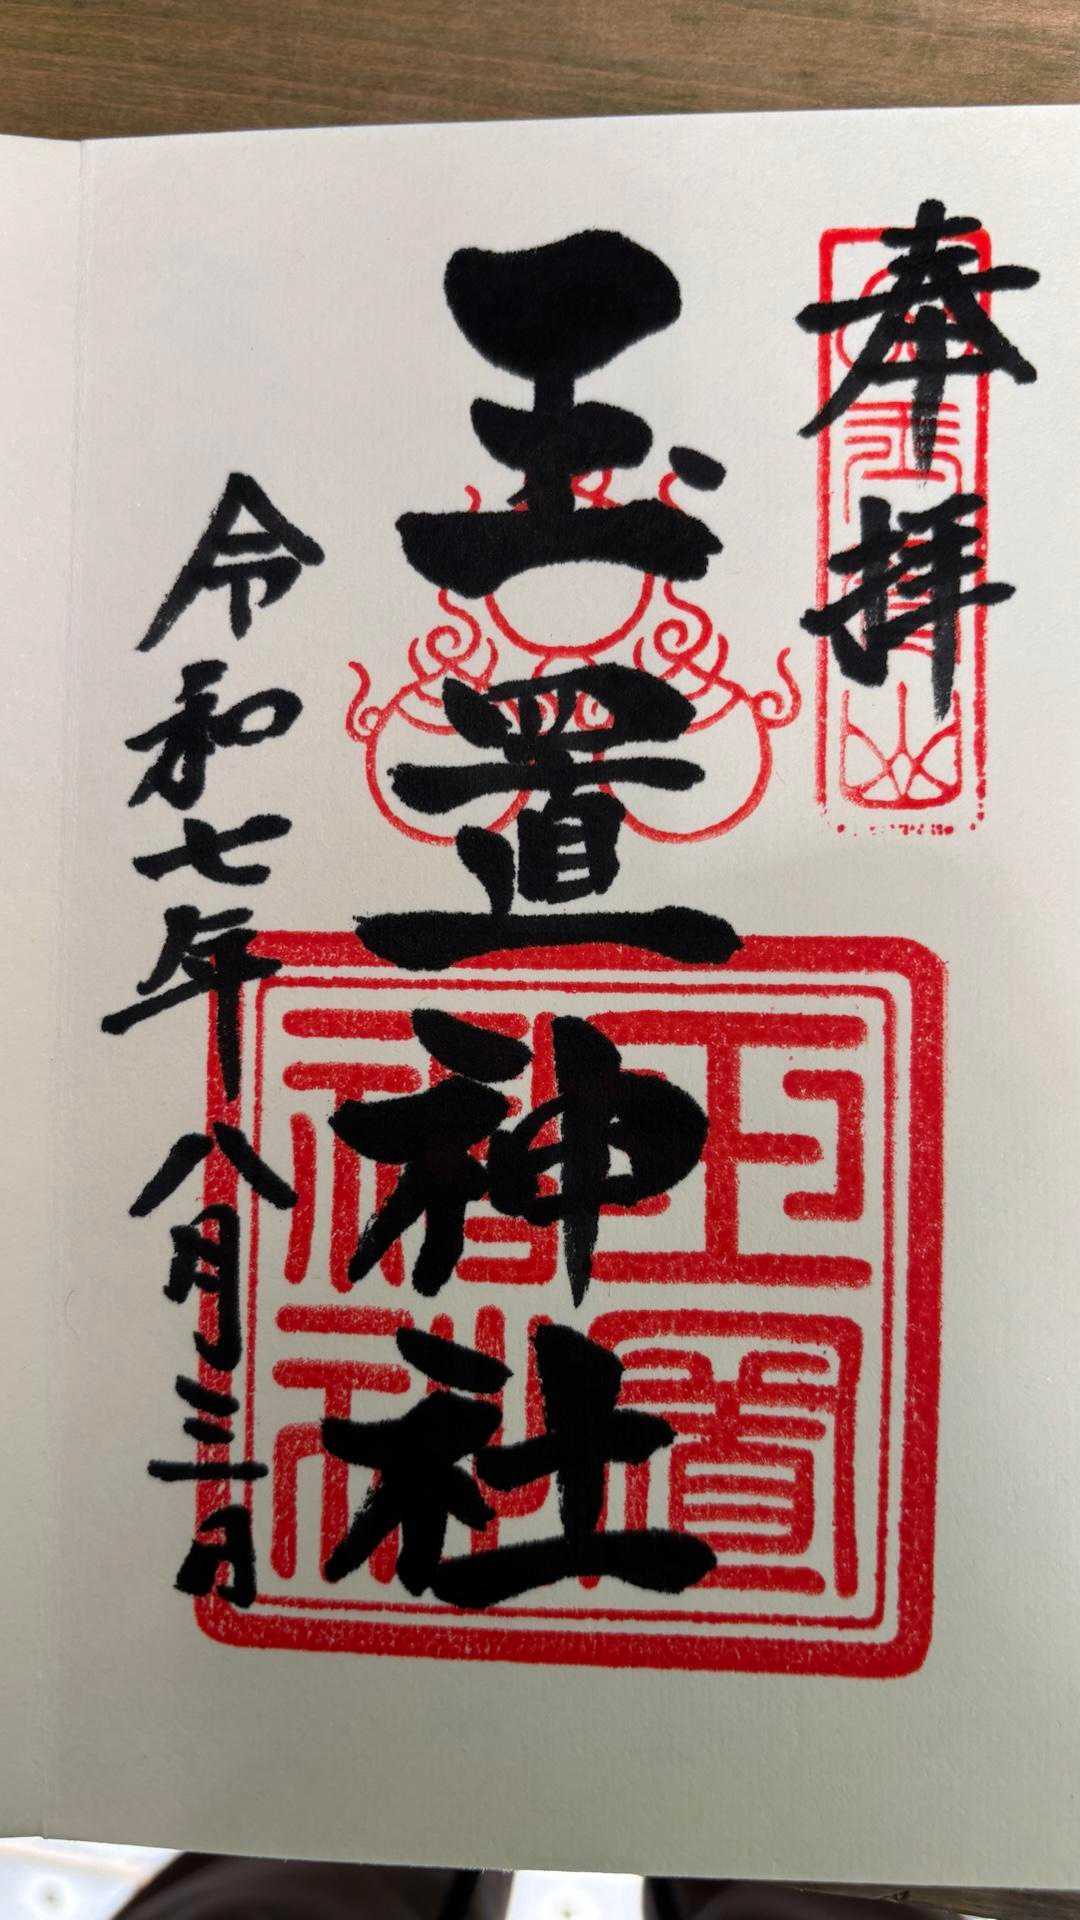 奉拝
玉置神社
令和七年八月三日
玉置神社